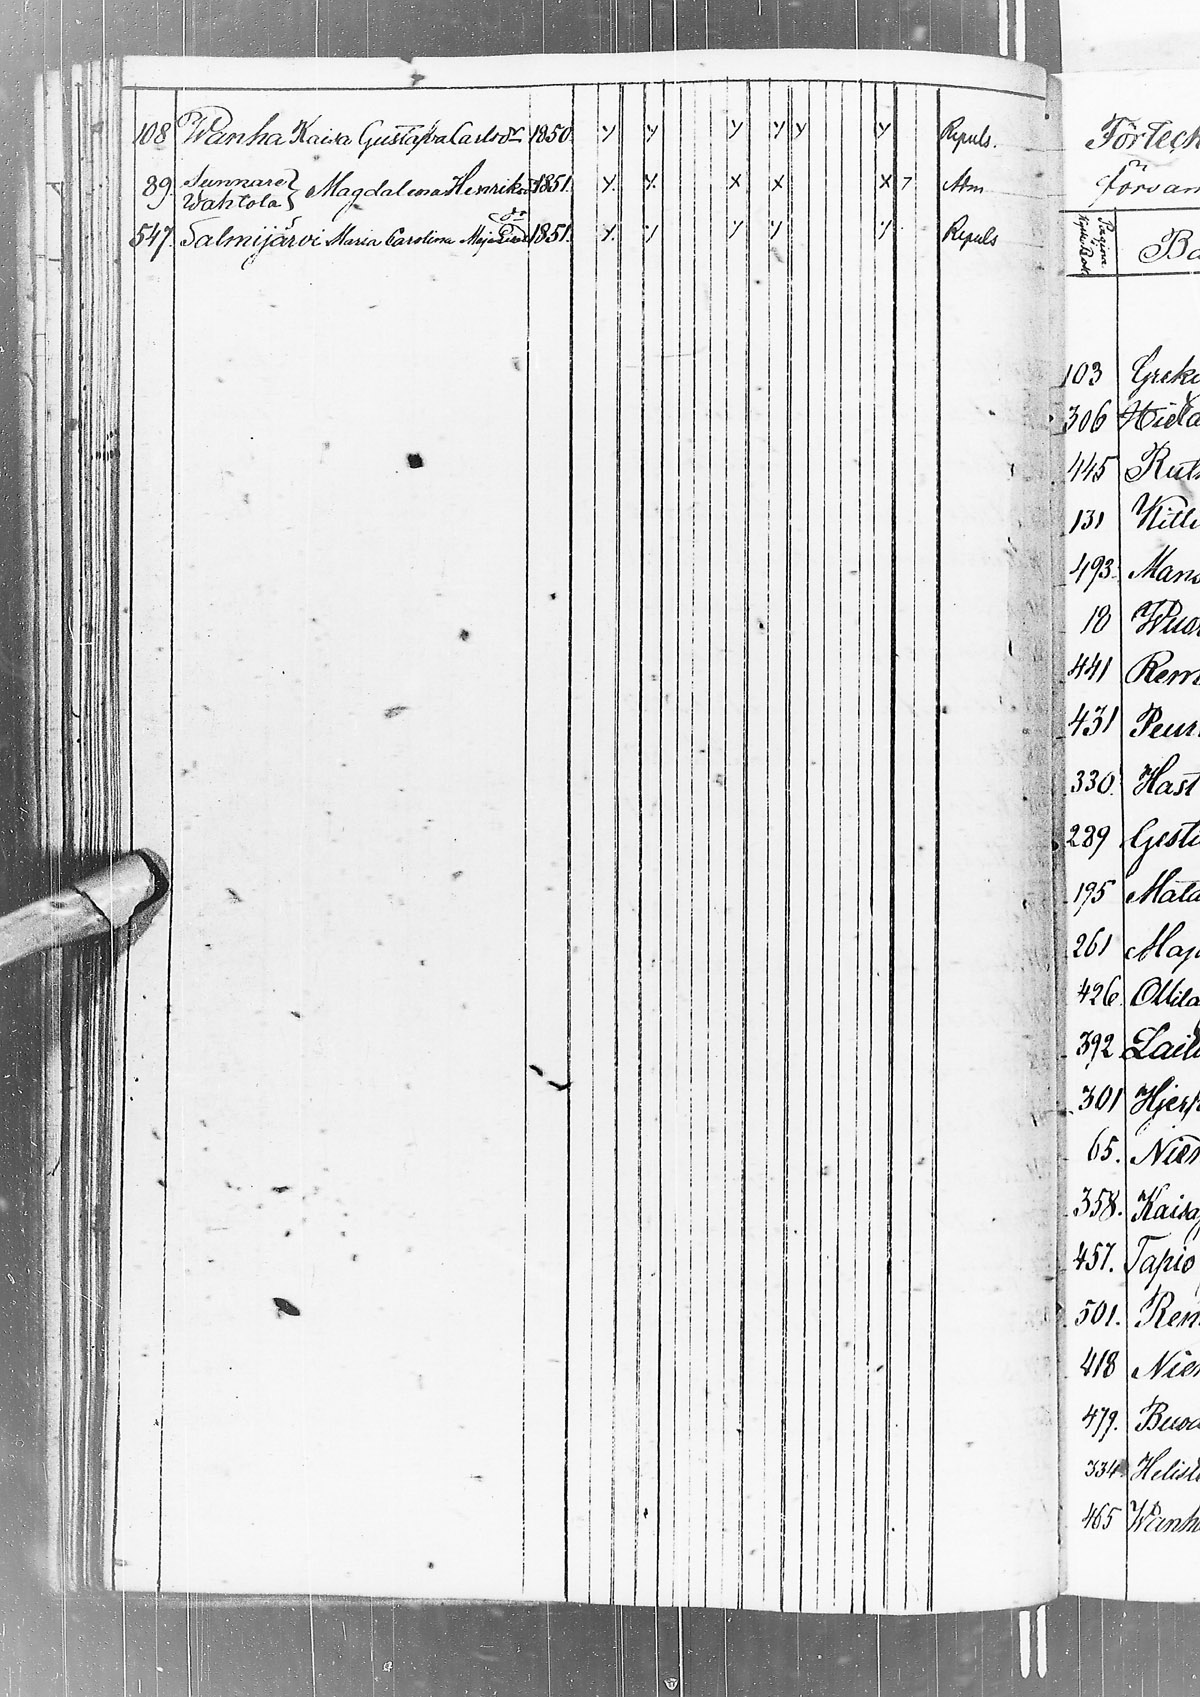 108 Wanha Kaisa Gustafva Carlsdr 1850 y y y y y y Repuls.
89. Sunnare
Wahtola } Magdalena Henriksd 1851. y. y. x x x 7 Atm
dr
547. Salmijärvi Maria Carolina Maja 1851. y. y y y y Repuls
Förteck
försam
Pagina
Ba
103 Greku
306 Hieta
445 Ruts
131 Kitti
493. Mano
18 Wuor
441 Rem
431 Peur
330. Hast
289 Gestr
195 Mata
261 Maj
426. Ollila
392 Laiti
301 Hjerp
65. Niem
358. Kaisa
457. Tapio
501. Ren
418 Niem
479. Buod
334 Helist
465 Wanh